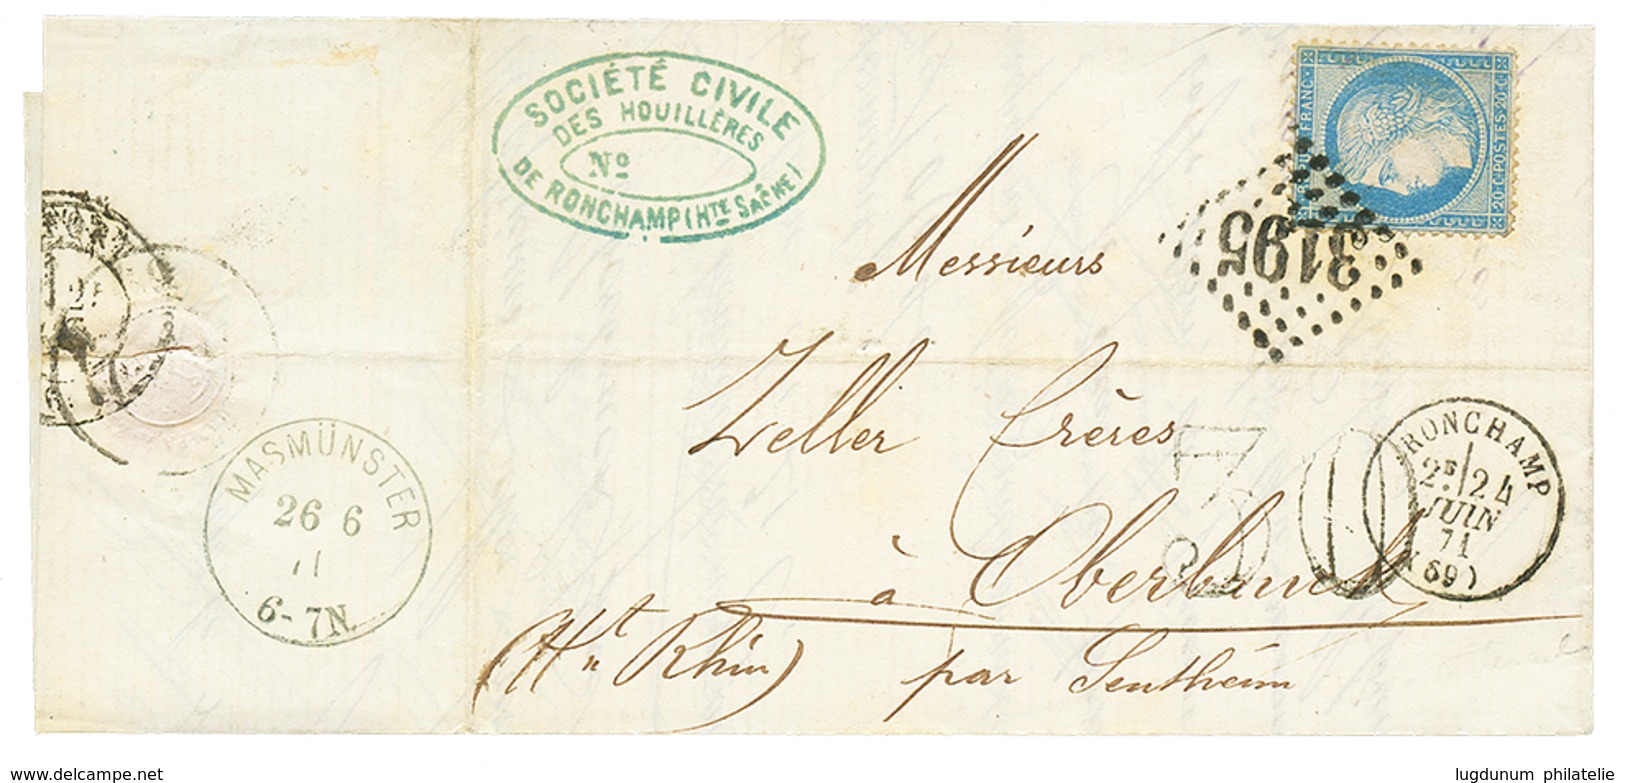 SOCIÉTÉ CIVILE
DES HOUILLÈRES
No
DE RONCHAMP (HTE SAÔNE)
RÉPUB FRANC
20 C POSTES 20 C
3195
Messieurs
Zeller Frères
à Oberbruck
(Ht Rhin) par Sentheim
RONCHAMP
2E 24
JUIN
71
(69)
MASMÜNSTER
26 6
6-7N
delcampe.net
lugdunum philatelie